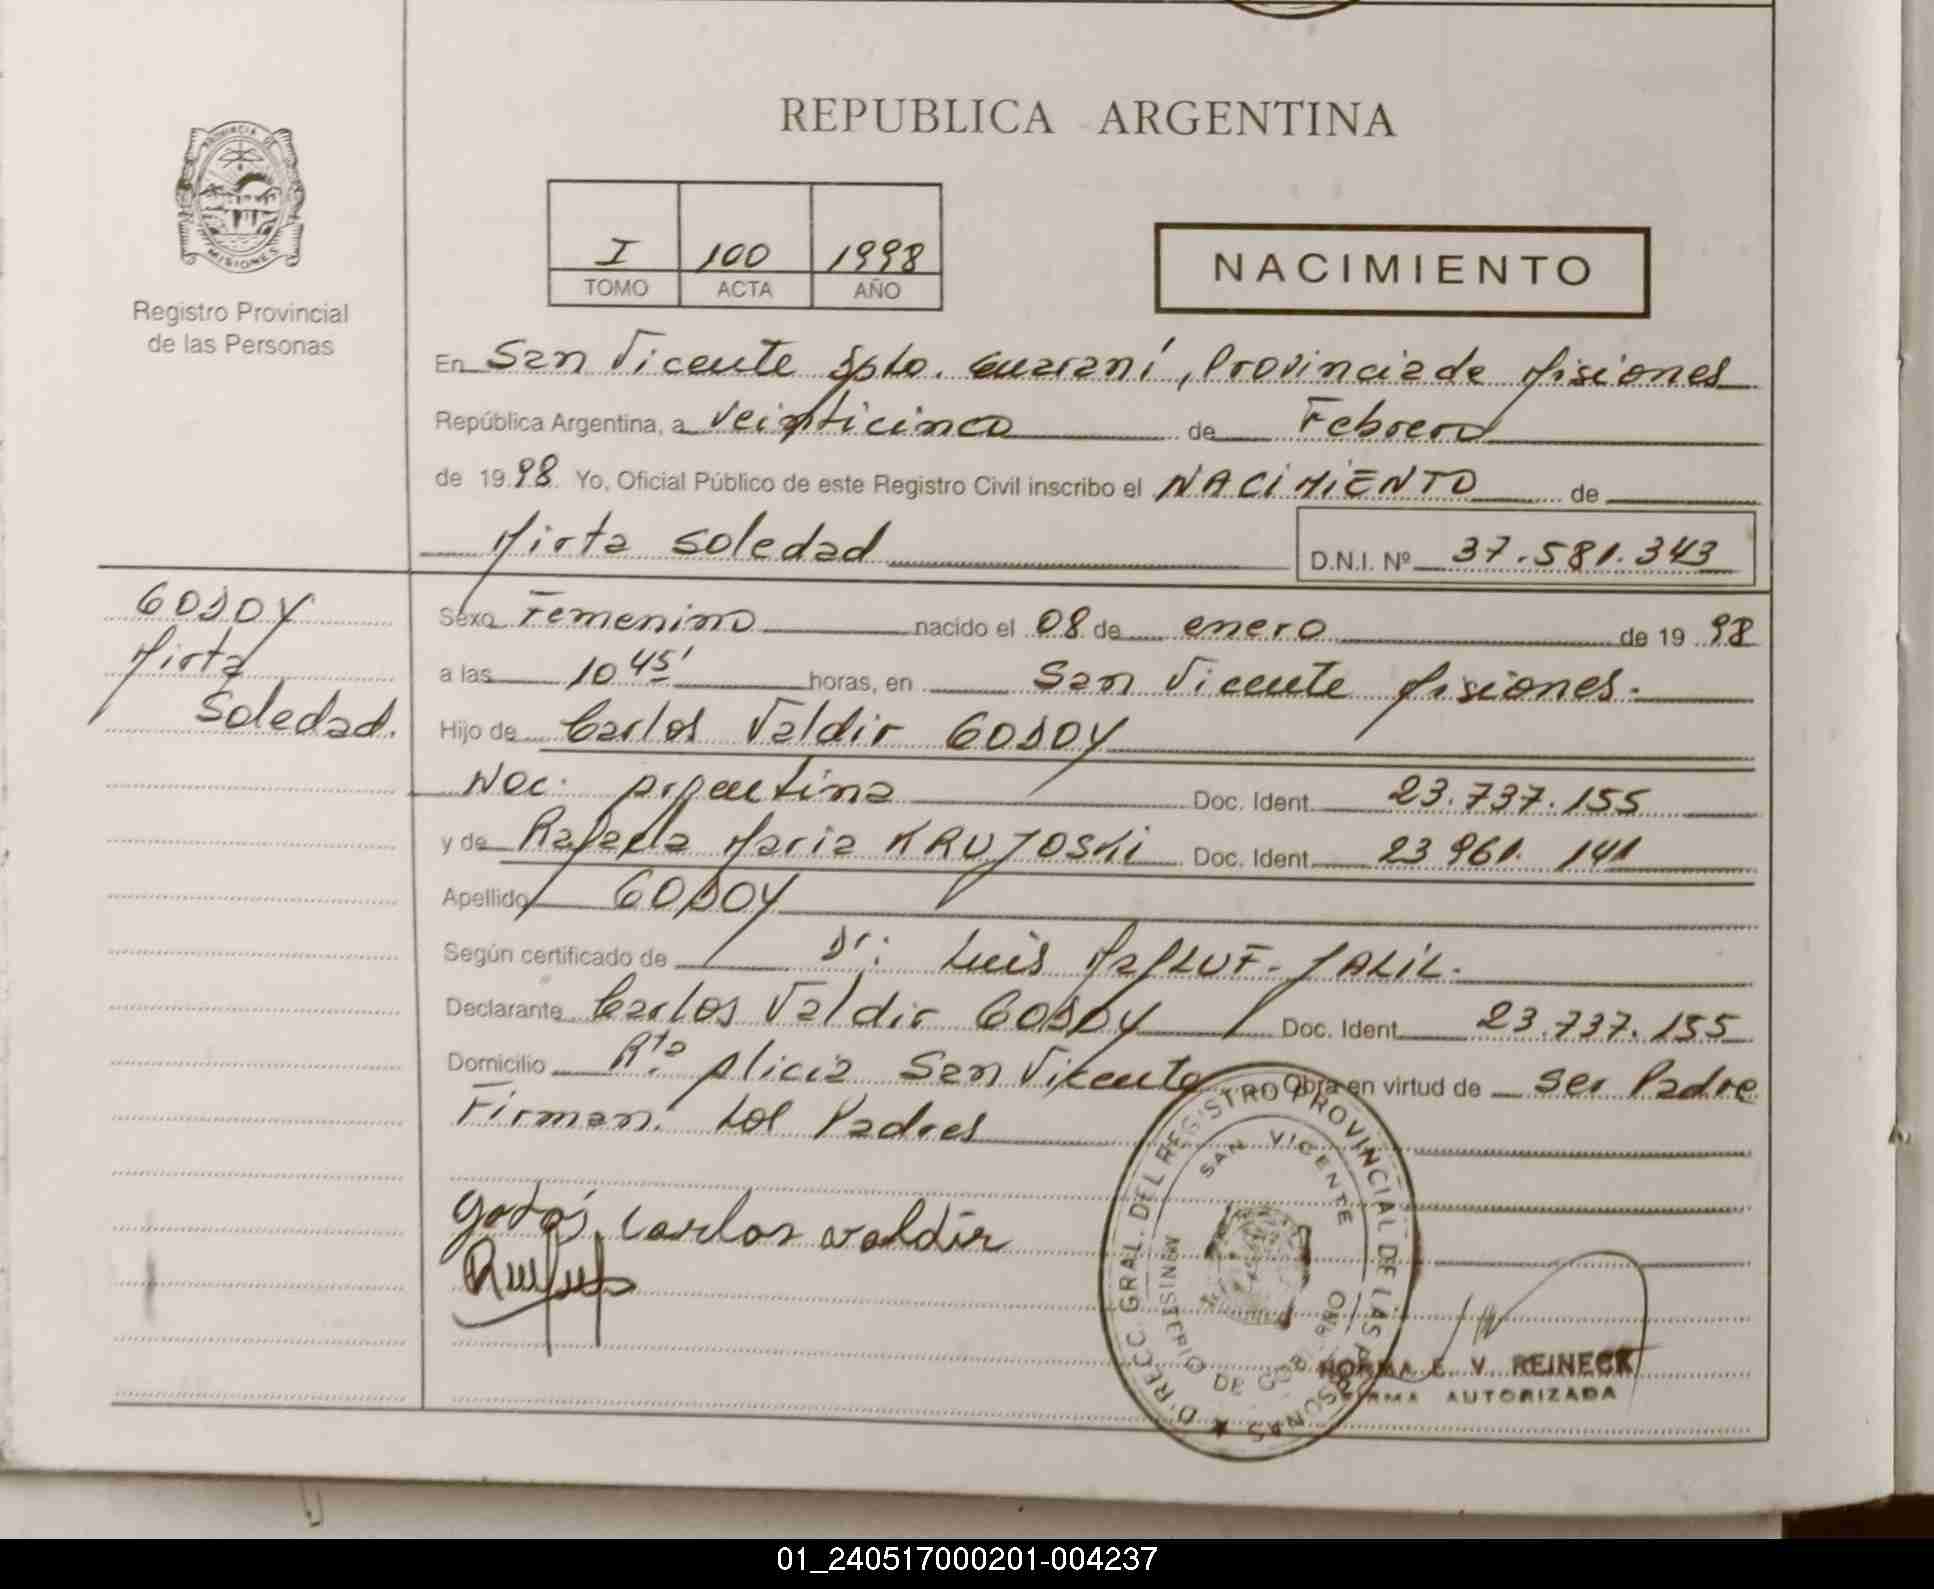 REPUBLICA ARGENTINA
PROVINCIA DE MISIONES
Registro Provincial
de las Personas
I 100 1998
TOMO ACTA AÑO
NACIMIENTO
En San Vicente Dpto. Guaraní, Provincia de Misiones
República Argentina, a veinticinco de Febrero
de 1998 Yo, Oficial Público de este Registro Civil inscribo el NACIMIENTO de
Mirta Soledad D.N.I. Nº 37.581.343
GODOY
Mirta
Soledad.
Sexo Femenino nacido el 08 de enero de 1998
a las 10 45' horas, en San Vicente Misiones.
Hijo de Carlos Valdir GODOY
Nac. Argentina Doc. Ident. 23.737.155
y de Rafaela Maria KRUJOSKI Doc. Ident. 23 961. 141
Apellido GODOY
Según certificado de Dr: Luis MaFLUF-JALIL.
Declarante Carlos Valdir GODOY Doc. Ident. 23.737.155
Domicilio Rta. Alicia San Vicente Obra en virtud de Ser Padre
Firman: Los Padres
Godoy Carlos Valdir
DIRECC. GRAL. DEL REGISTRO PROVINCIAL DE LAS PERSONAS
SAN VICENTE
MINISTERIO DE GOBIERNO
NORMA E. V. REINECK
FIRMA AUTORIZADA
01_240517000201-004237